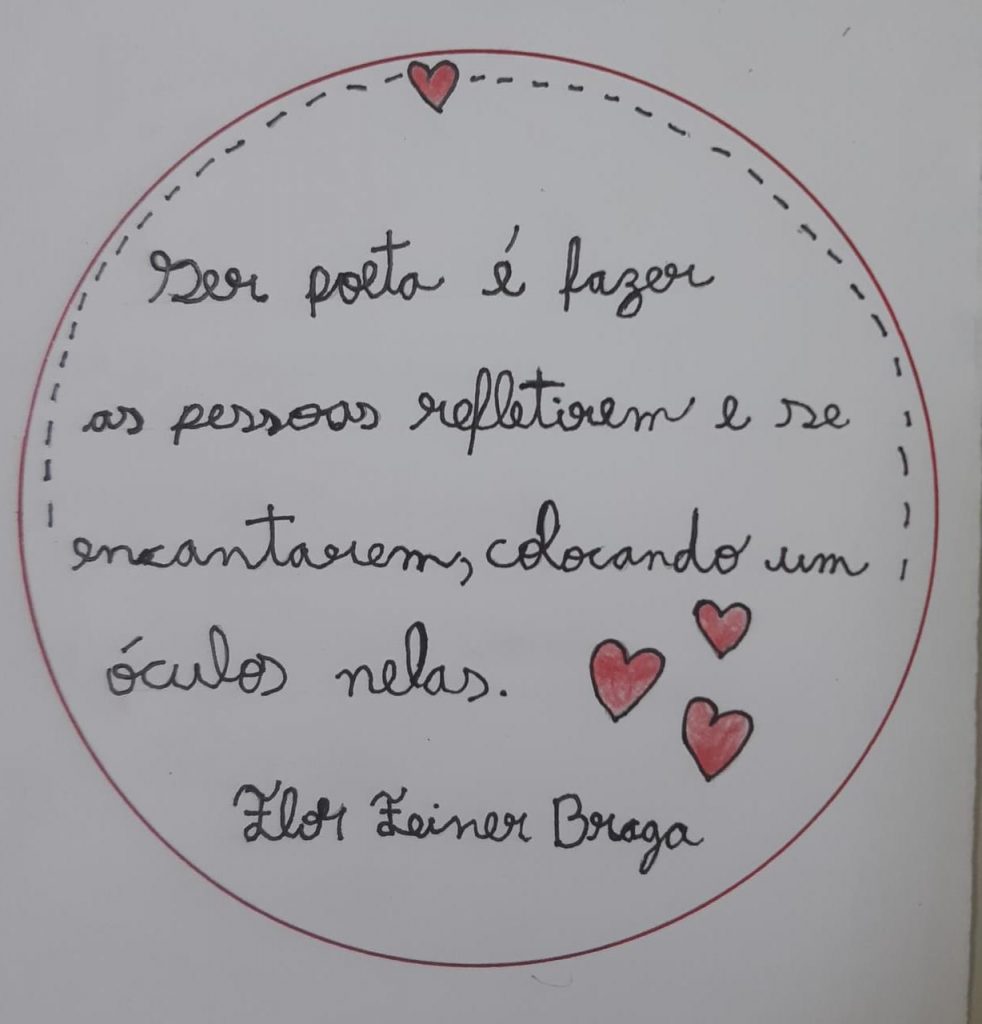 Ser poeta é fazer
as pessoas refletirem e se
encantarem, colocando um
óculos nelas.
Flor Feiner Braga